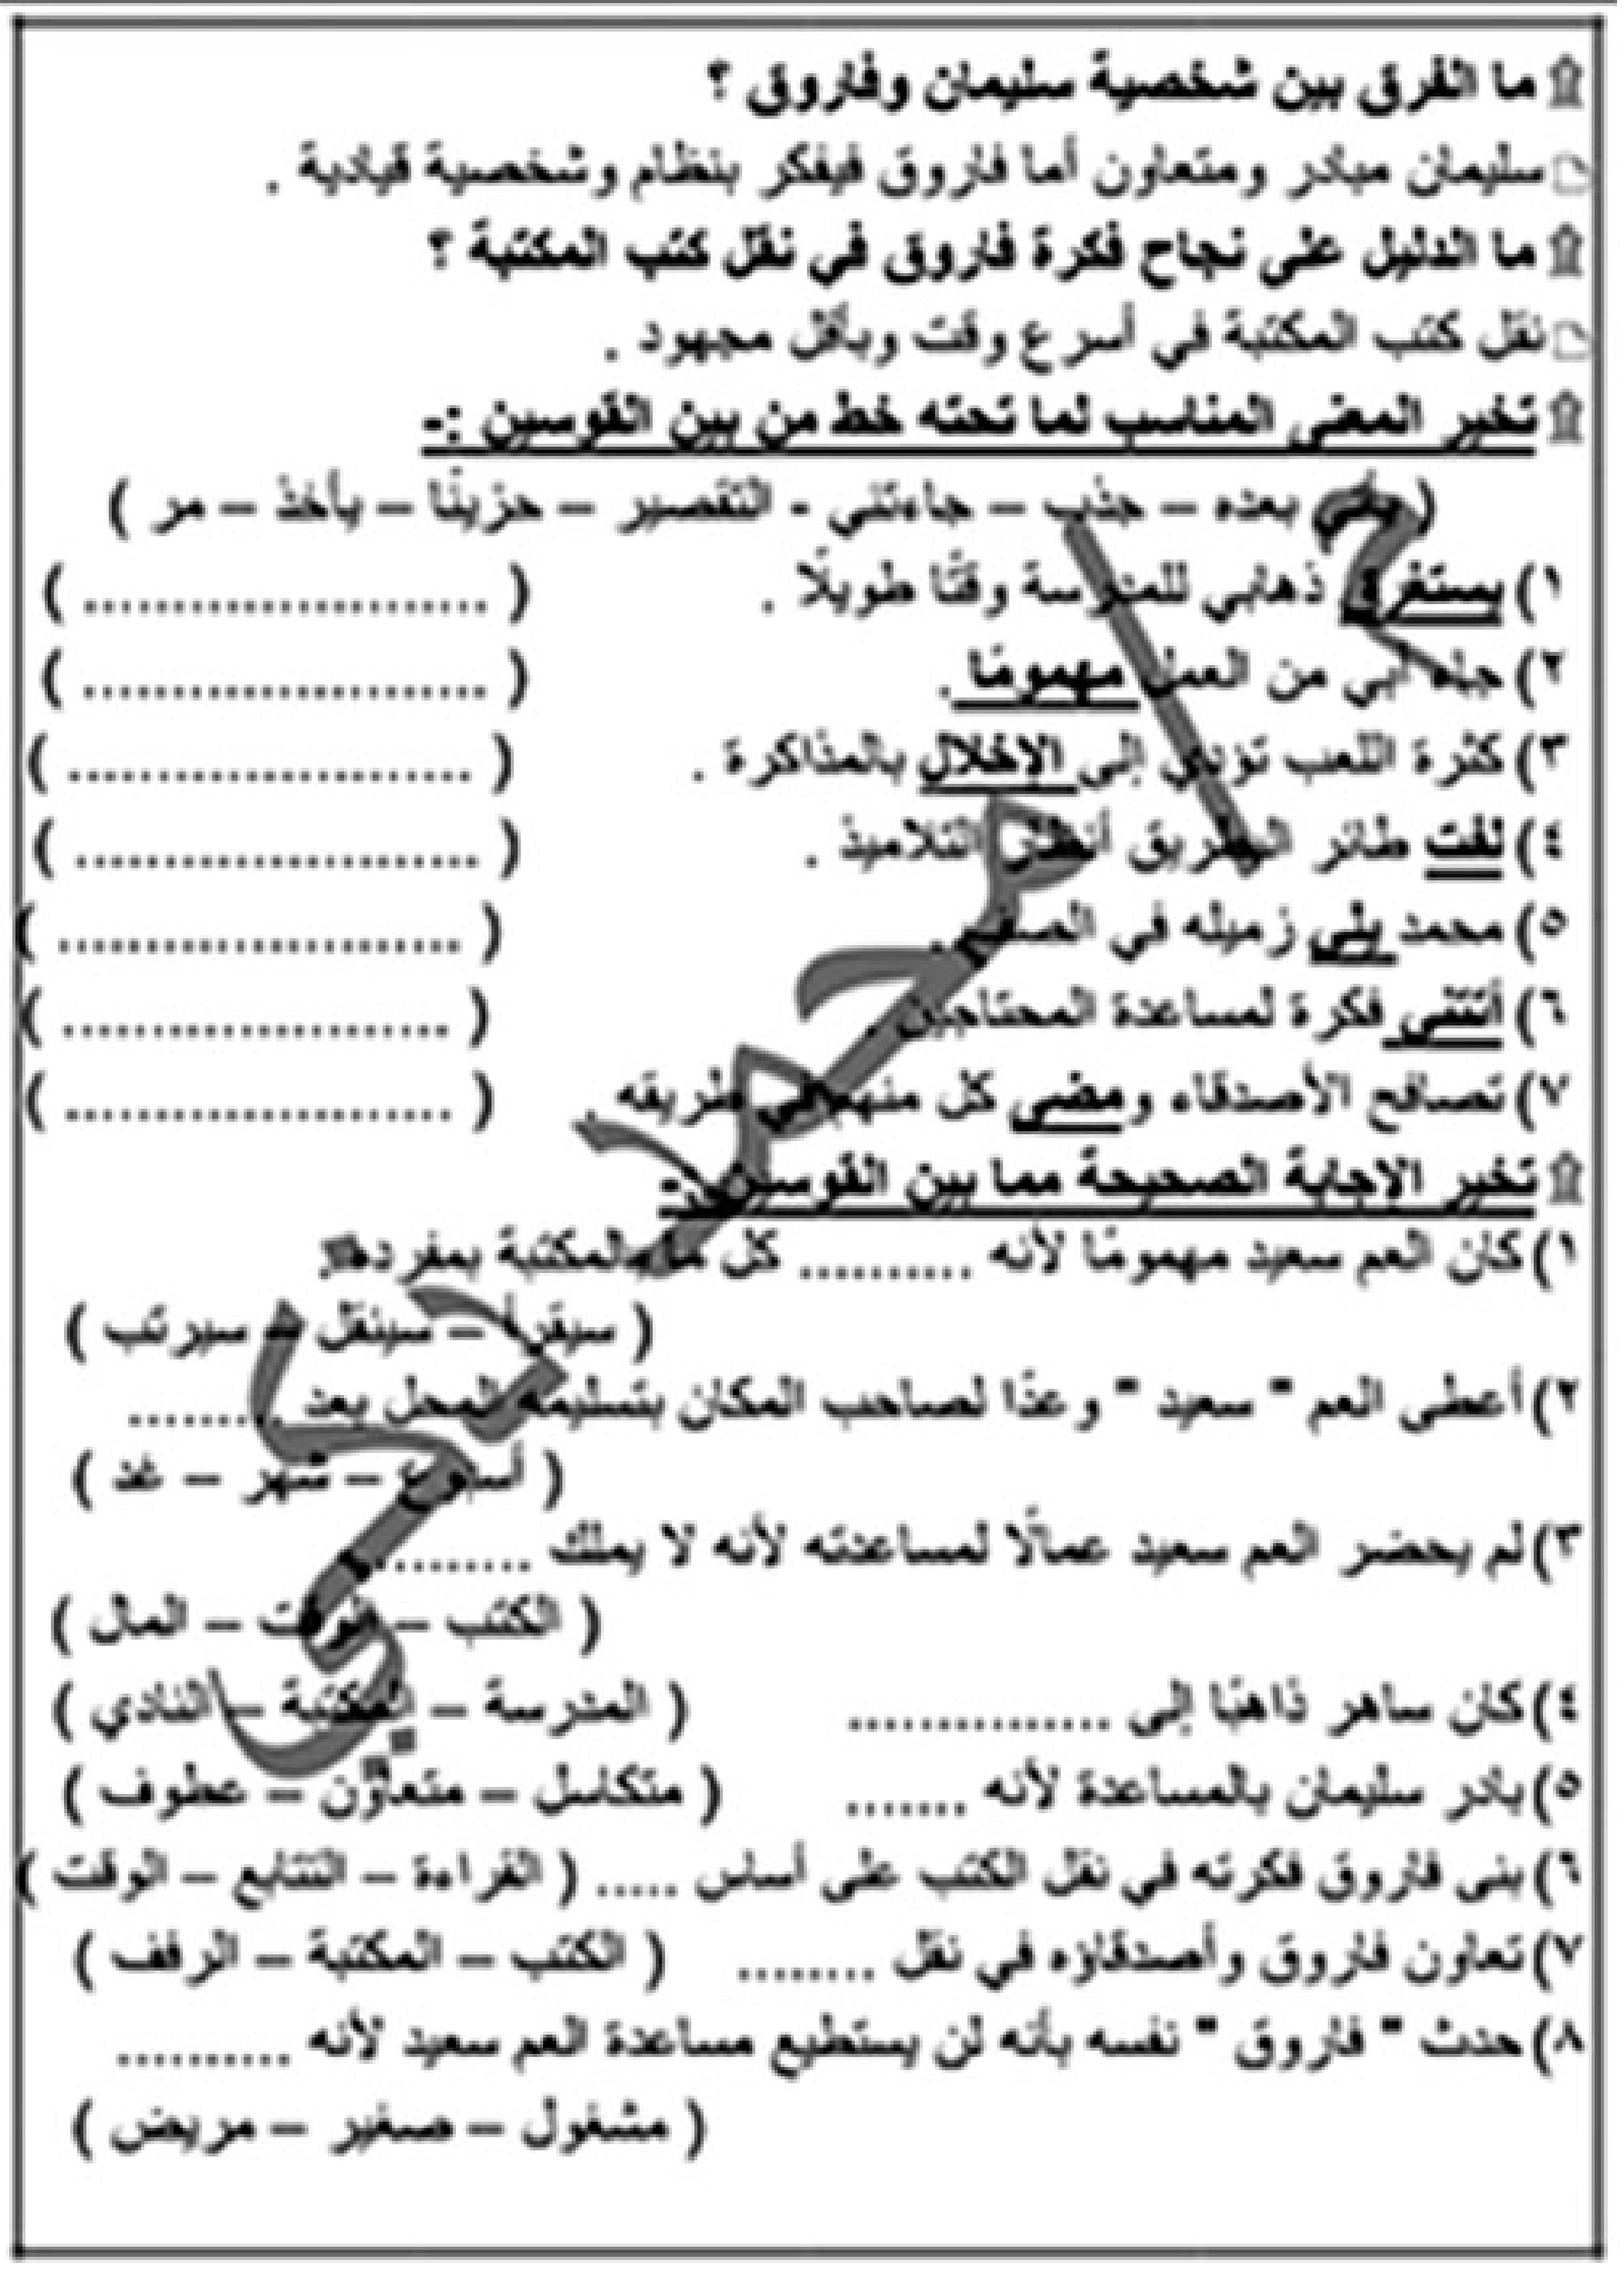 ما الفرق بين شخصية سليمان وفاروق ؟
سليمان مبادر ومتعاون أما فاروق فيفكر بنظام وشخصية قيادية .
ما الدليل على نجاح فكرة فاروق في نقل كتب المكتبة ؟
نقل كتب المكتبة في أسرع وقت وبأقل مجهود .
تخير المعنى المناسب لما تحته خط من بين القوسين :-
( يأتي بعده – جذب – جاءتني - التقصير – حزينًا – يأخذ – مر )
١) يستغرق ذهابي للمدرسة وقتًا طويلًا . ( ....................... )
٢) جاء أبي من العمل مهمومًا . ( ....................... )
٣) كثرة اللعب تؤدي إلى الإخلال بالمذاكرة . ( ....................... )
٤) لفت طائر البطريق أنظار التلاميذ . ( ....................... )
٥) محمد يلي زميله في الصف . ( ....................... )
٦) أتتني فكرة لمساعدة المحتاجين . ( ...................... )
٧) تصافح الأصدقاء ومضى كل منهم في طريقه . ( ...................... )
تخير الإجابة الصحيحة مما بين القوسين :-
١) كان العم سعيد مهمومًا لأنه .......... كل ما بالمكتبة بمفرده .
( سيقرأ – سينقل – سيرتب )
٢) أعطى العم " سعيد " وعدًا لصاحب المكان بتسليمه المحل بعد .........
( أسبوع – شهر – غد )
٣) لم يحضر العم سعيد عمالًا لمساعدته لأنه لا يملك ..........
( الكتب – الوقت – المال )
٤) كان ساهر ذاهبًا إلى ............... ( المدرسة – المكتبة – النادي )
٥) بادر سليمان بالمساعدة لأنه ....... ( متكاسل – متعاون – عطوف )
٦) بنى فاروق فكرته في نقل الكتب على أساس ..... ( القراءة – التتابع – الوقت )
٧) تعاون فاروق وأصدقاؤه في نقل ........ ( الكتب – المكتبة – الرفف )
٨) حدث " فاروق " نفسه بأنه لن يستطيع مساعدة العم سعيد لأنه ..........
( مشغول – صغير – مريض )